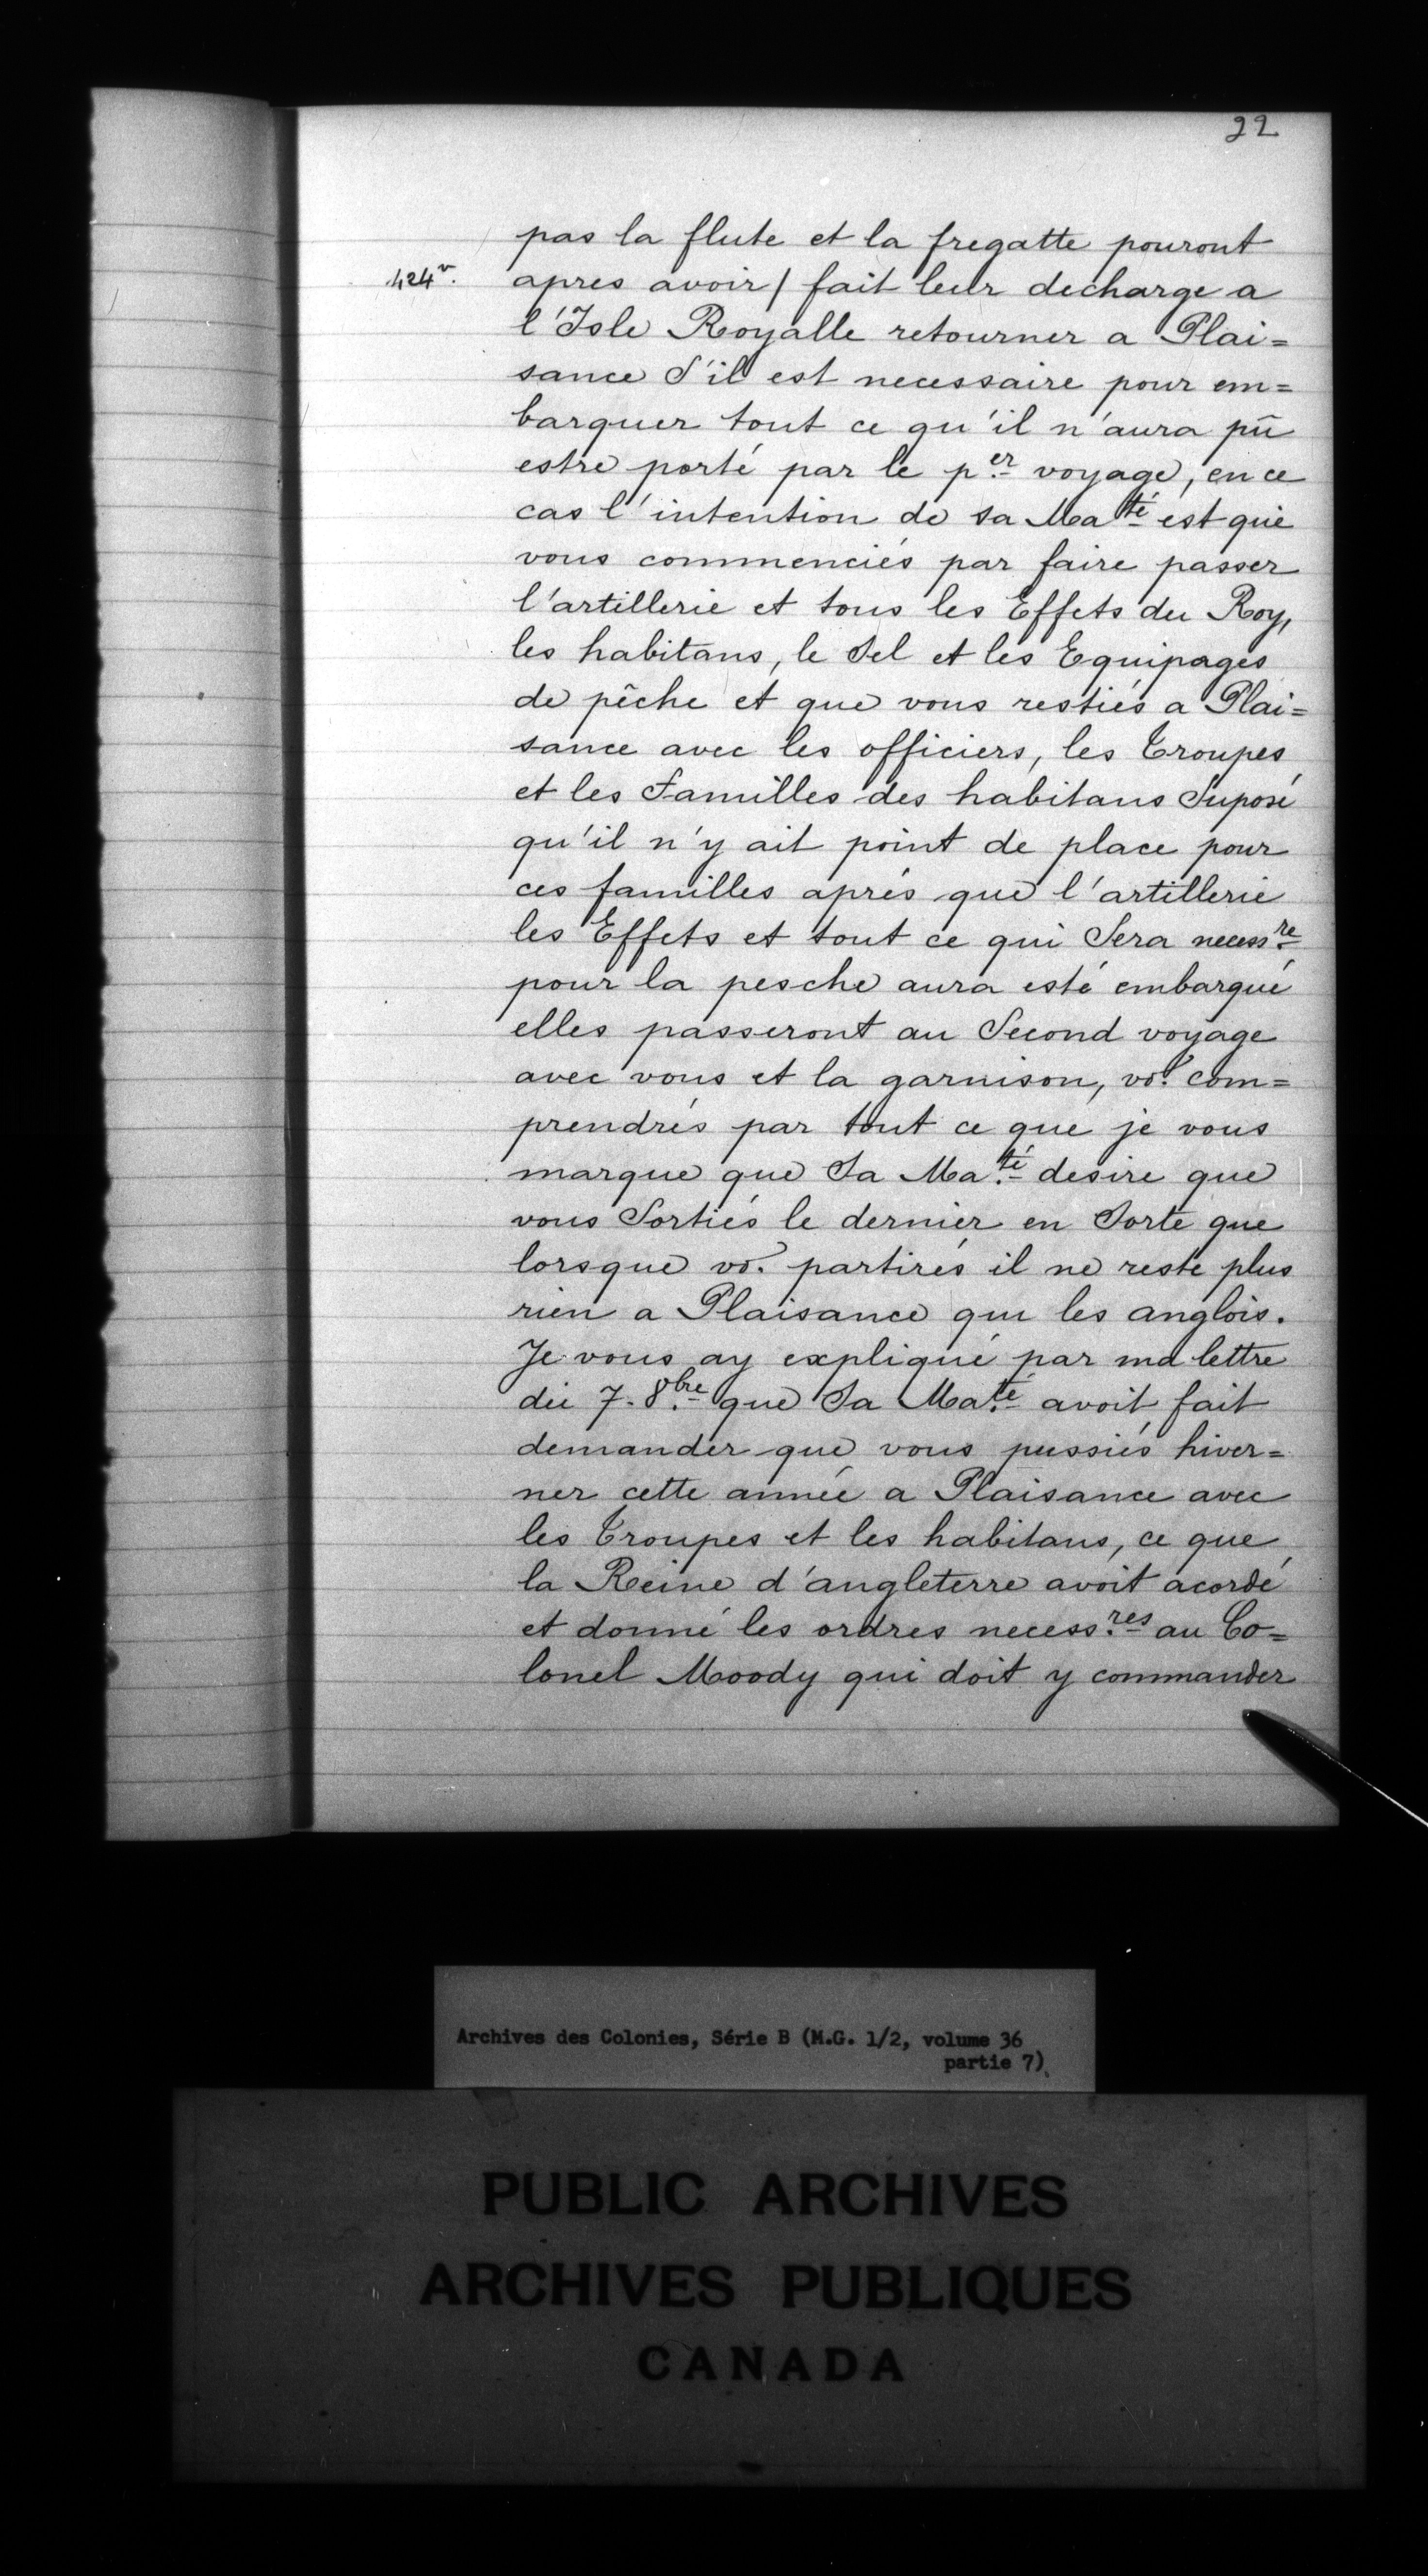 22
pas la flute et la fregatte pouront
424v. apres avoir / fait leur decharge a
l'Isle Royalle retourner a Plai=
sance S'il est necessaire pour em=
barquer tout ce qu'il n'aura pû
estre porté par le per voyage, en ce
cas l'intention de sa Maté est que
vous commenciés par faire passer
l'artillerie et tous les Effets du Roy,
les habitans, le Sel et les Equipages
de pêche et que vous restiés a Plai=
sance avec les officiers, les Troupes
et les Familles des habitans Suposé
qu'il n'y ait point de place pour
ces familles aprés que l'artillerie
les Effets et tout ce qui Sera necessre
pour la pesche aura esté embarqué
elles passeront au Second voyage
avec vous et la garnison, vos com=
prendrés par tout ce que je vous
marque que Sa Maté desire que
vous Sortiés le dernier en Sorte que
lorsque vos partirés il ne reste plus
rien a Plaisance que les anglois.
Je vous ay expliqué par ma lettre
du 7. 8bre que Sa Maté avoit fait
demander que vous pussiés hiver=
ner cette année a Plaisance avec
les Troupes et les habitans, ce que
la Reine d'angleterre avoit acordé
et donné les ordres necessres au Co=
lonel Moody qui doit y commander
Archives des Colonies, Série B (M.G. 1/2, volume 36
partie 7)
PUBLIC ARCHIVES
ARCHIVES PUBLIQUES
CANADA